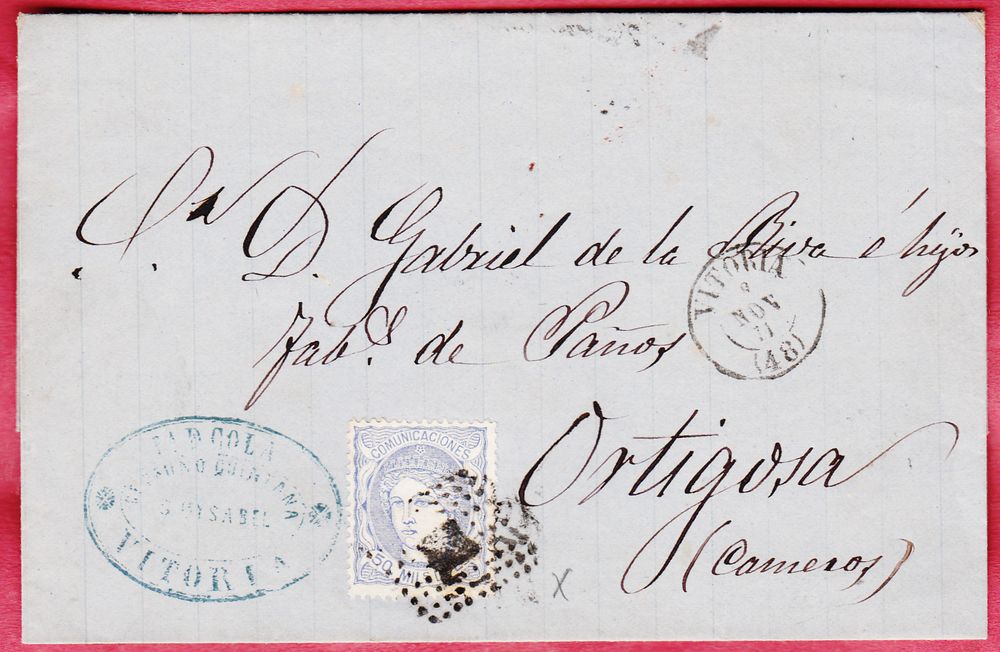 Sr. D. Gabriel de la Riva é hijos
Fabs. de Paños
Ortigosa
(Cameros)
VITORIA
NOV
71
(48)
COMUNICACIONES
50 MIL
QUINTANA
YSABEL
VITORIA
X